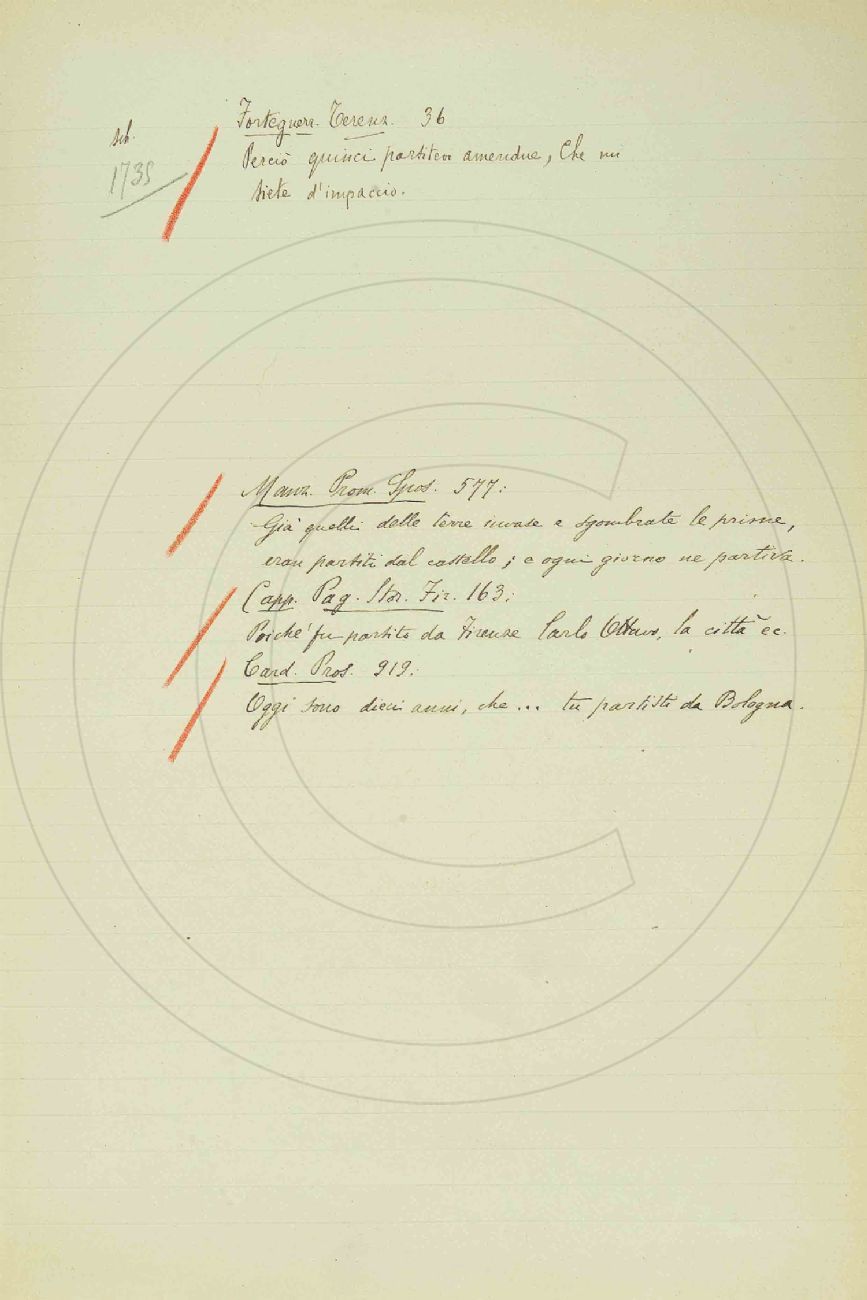 sch.
1735
Forteguerr. Terenz. 36
Perciò quinci partitevi amendue, Che mi
siete d'impaccio.
Manz. Prom. Spos. 577:
Già quelli delle terre invase e sgombrate le prime,
eran partiti dal castello; e ogni giorno ne partiva.
Capp. Pag. Stor. Fir. 163:
Poiché fu partito da Firenze Carlo Ottavo, la città ec.
Card. Pros. 919:
Oggi sono dieci anni, che ... tu partisti da Bologna.